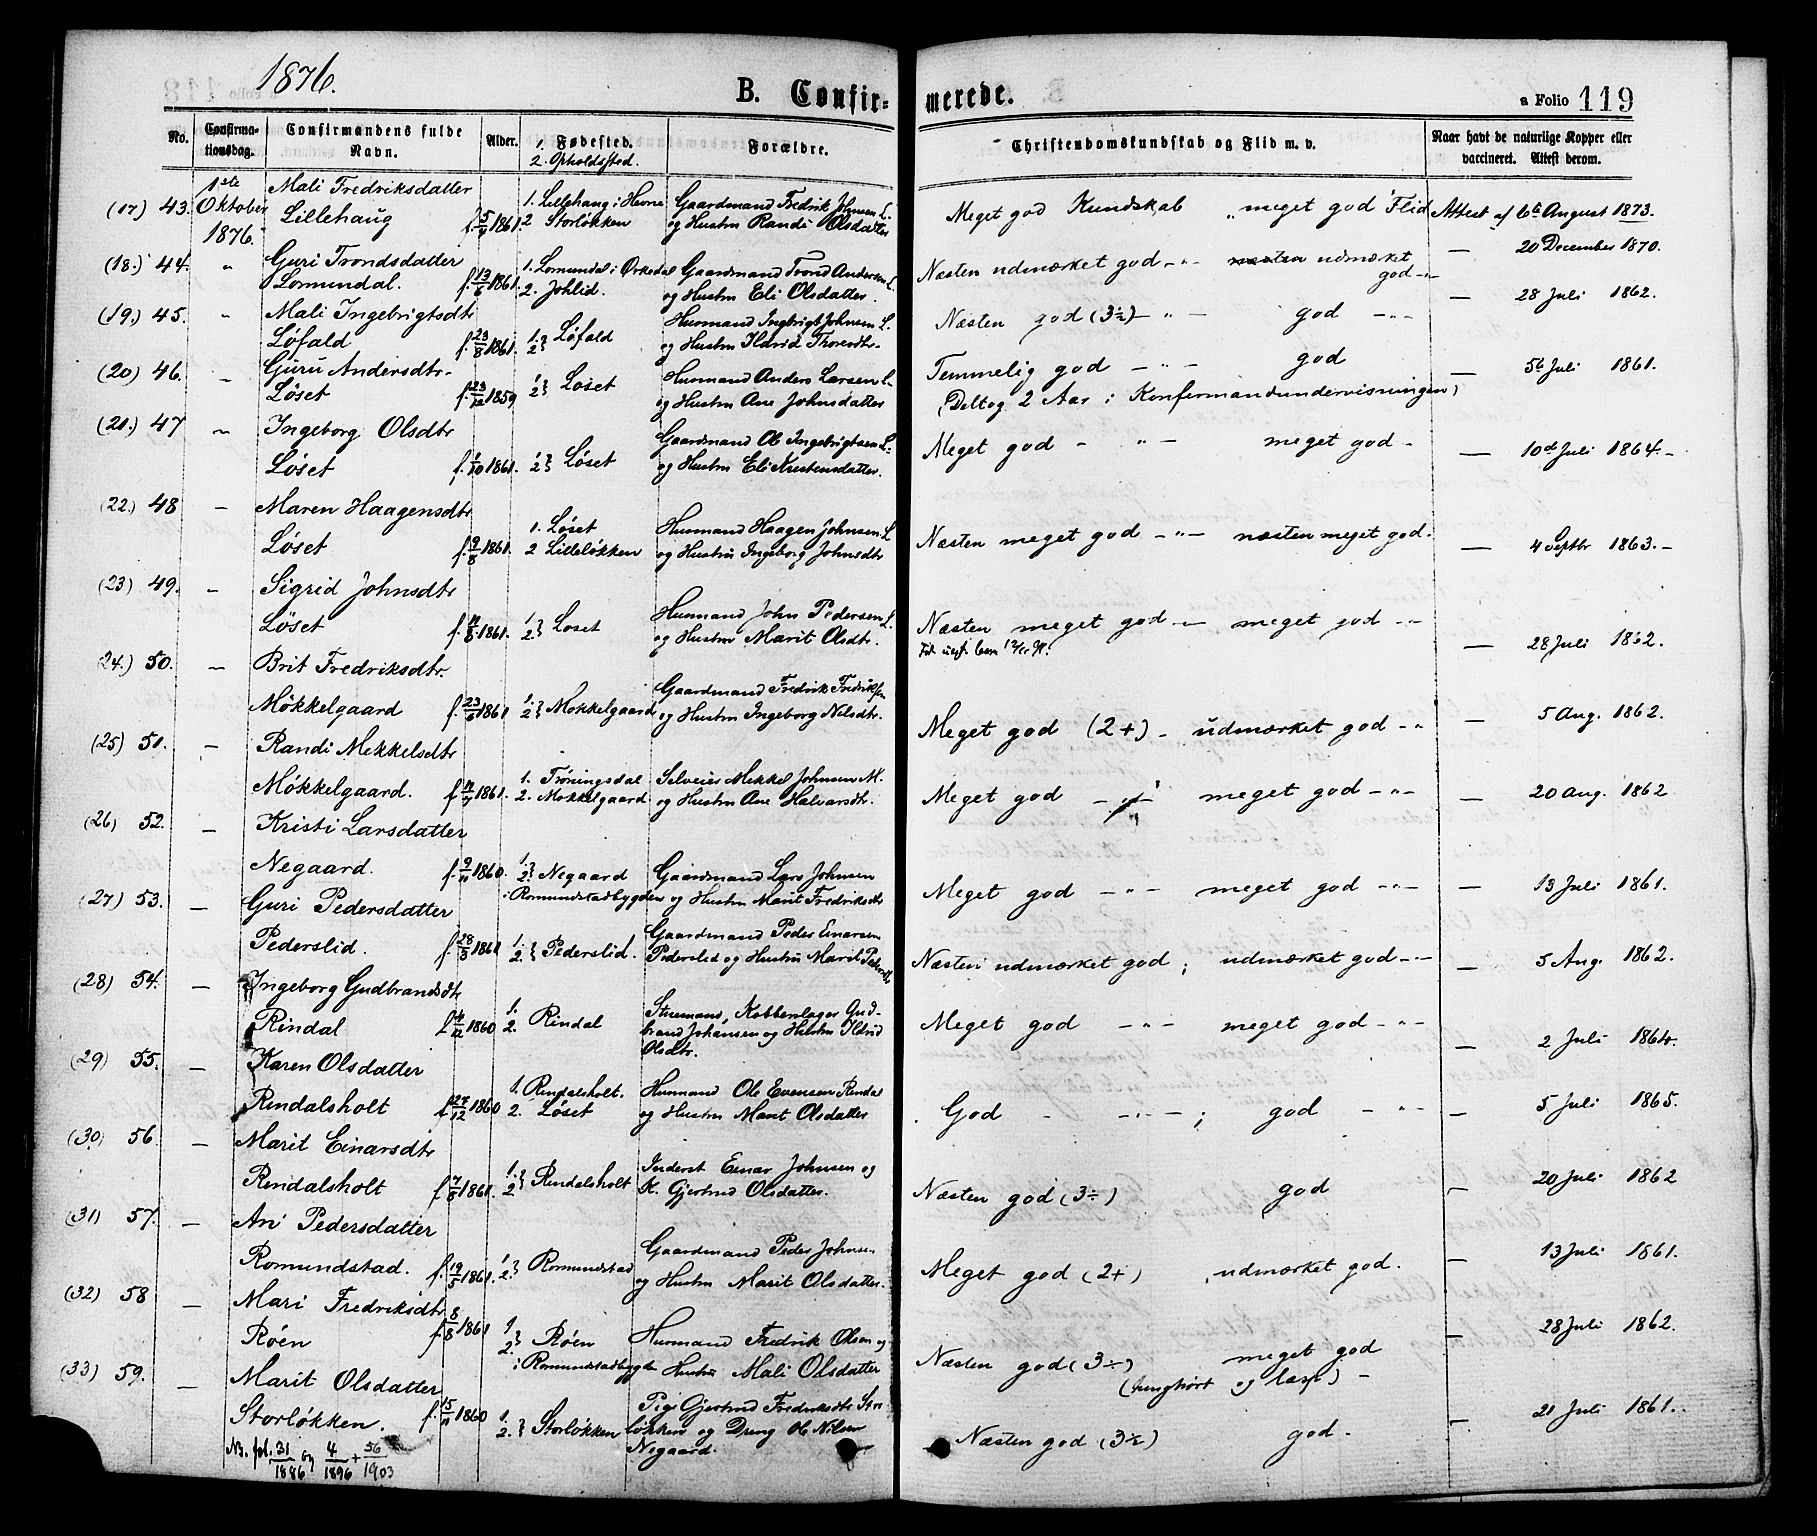 1876.
B. Confir-
merede.
a Folio 119
No.
Confirma-
tionsdag.
Confirmandens fulde
Navn.
Alder.
1. Fødested.
2. Opholdssted.
Forældre.
Christendomskundskab og Flid m. v.
Naar havt de naturlige Kopper eller
vaccineret. Attest derom.
(17) 43. 1ste Oktober 1876.
Mali Fredriksdatter
Lillehaug f. 5/7 1861.
1. Lillehaug i Hevne
2 Storløkken
Gaardmand Fredrik Johnsen L.
og Hustru Randi Olsdatter
Meget god Kundskab " meget god Flid
Attest af 6te August 1873.
(18.) 44. "
Guri Trondsdatter
Lomundal. f. 13/6 1861.
1. Lomundal i Orkedal
2. Johlid.
Gaardmand Trond Andersen L.
og Hustru Eli Olsdatter.
Næsten udmærket god - " - næsten udmærket
god - " -
— 20 December 1870.
(19.) 45. "
Mali Ingebrigtsdtr
Løfald f. 23/8 1861.
1. 2. } Løfald
Husmand Ingbrigt Johnsen L.
og Hustru Ildrid Thoresdtr.
Næsten god (3½) - " - god - " -
— 28 Juli 1862.
(20) 46. "
Guru Andersdtr.
Løset f. 23/12 1859
1. 2 } Løset
Husmand Anders Larsen L.
og Hustru Ane Johnsdatter
Temmelig god - " - god
(Deltog 2 Aar i Konfirmandundervisningen)
— 5te Juli 1861.
(21.) 47 "
Ingeborg Olsdtr
Løset f. 1/10 1861.
1. 2 } Løset
Gaardmand Ol Ingebrigtsen L.
og Hustru Eli Kristensdatter.
Meget god - " - meget god -
— 10de Juli 1864. -
(22.) 48 -
Maren Haagensdtr
Løset f. 9/8 1861.
1. Løset
2 Lilleløkken
Husmand Haagen Johnsen L
og Hustru Ingeborg Johnsdtr
Næsten meget god - " - næsten meget god.
— 4 Septbr 1863. -
(23) 49. "
Sigrid Johnsdtr
Løset f. 4/8 1861.
1. 2. } Løset
Husmand John Pedersen L.
og Hustru Marit Olsdtr.
Næsten meget god - " meget god - "
— 28 Juli 1862.
(24.) 50. "
Brit Fredriksdtr.
Møkkelgaard f. 23/6 1861
1. 2 } Møkkelgaard
Gaardmand Fredrik Fredriksen
og Hustru Ingeborg Nilsdtr.
Meget god (2+) - udmærket god - "
— 5 Aug. 1862.
(25) 51. —
Randi Mekkelsdtr
Møkkelgaard. 1861.
1. Trøningsdal
2. Møkkelgaard
Selveier Mekkel Johnsen M.
og Hustru Ane Halvorsdtr.
Meget god - " - meget god - " -
— 20 Aug. 1862
(26) 52. —
Kristi Larsdatter
Negaard. f. 9/11 1860.
1. 2. } Negaard
i Romundstadbygden
Gaardmand Lars Johnsen
og Hustru Marit Fredriksdtr
Meget god - " - meget god - " -
— 13 Juli 1861.
(27) 53. —
Guri Pedersdatter
Pederslid. f. 28/3 1861
1. 2. } Pederslid.
Gaardmand Peder Einarsen
Pederslid og Hustru Marit Pedersdtr
Næsten udmærket god ; udmærket god - " -
— 5 Aug. 1862.
(28) 54. —
Ingeborg Gudbrandsdtr
Rindal f. 4/12 1860
1. 2. Rindal
Stuemand, Kobberslager Gud-
brand Johansen og Hustru Ildrid
Olsdtr.
Meget god - " - meget god - " -
— 2 Juli 1864.
(29) 55. —
Karen Olsdatter
Rindalsholt f. 27/12 1860
1. Rindalsholt.
2. Løset
Husmand Ole Evensen Rindal
og Hustru Marit Olsdatter
God - " - ; god - " -
— 5 Juli 1865.
(30) 56. —
Marit Einarsdtr
Rindalsholt f. 7/8 1861.
1. 2 } Rindalsholt
Inderst Einar Johnsen og
H. Gjertrud Olsdatter.
Næsten god (3÷) god
— 20 Juli 1862
(31) 57. —
Ari Pedersdatter
Romundstad. f. 19/5 1861.
1. 2. } Romundstad
Gaardmand Peder Johnsen
og Hustru Marit Olsdatter.
Meget god (2+) , udmærket god.
— 13 Juli 1861.
(32) 58 —
Mari Fredriksdtr
Røen f. 8/8 1861
1 2. } Røen
i Romundstadbygden
Husmand Fredrik Olsen og
Hustru Mali Olsdatter
Næsten god (3÷) meget god
(tunghørt og læsp) -
— 28 Juli 1862.
(33) 59. —
Marit Olsdatter
Storløkken. f. 15/11 1860
1. 2. } Storløkken
Pige Gjertrud Fredriksdtr Stor-
løkken og Dreng Ol Nilsen
Negaard.
Næsten god (3½) god -
— 21 Juli 1861.
Nb. fol. 31/1886 og 4/1896 + 56/1903